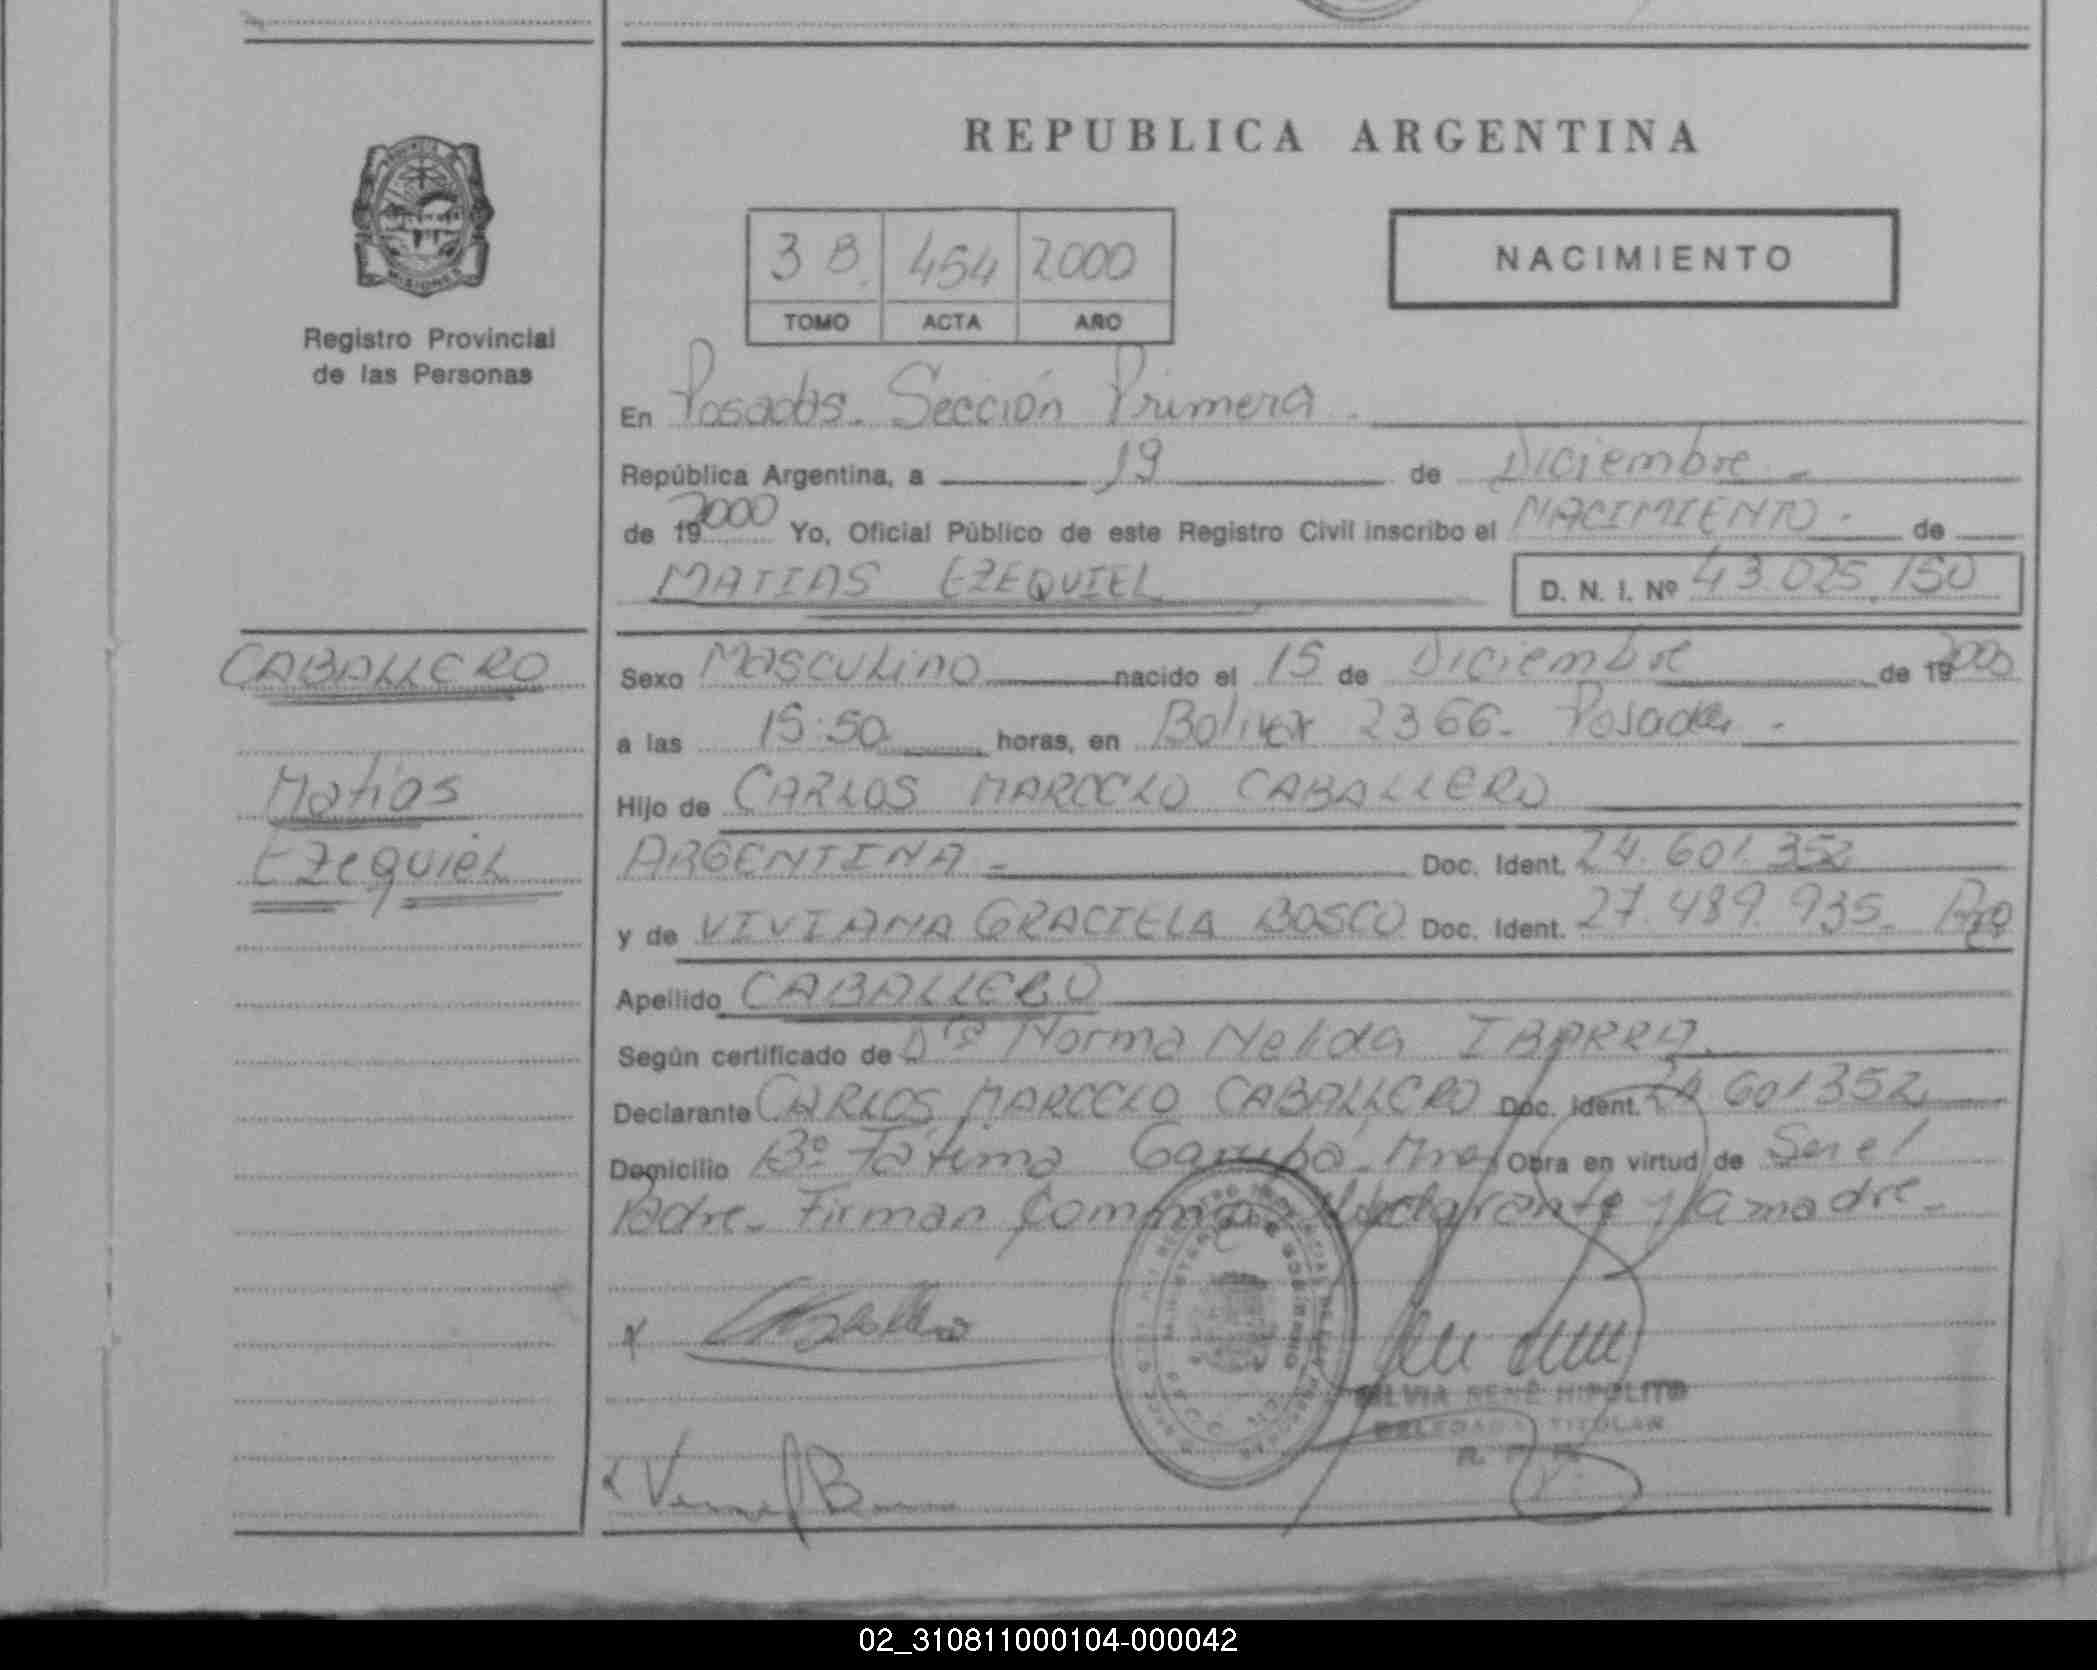 REPUBLICA ARGENTINA
NACIMIENTO
3 B. 454 2000
TOMO ACTA AÑO
MISIONES
Registro Provincial
de las Personas
En Posadas. Sección Primera.
República Argentina, a 19 de Diciembre
de 19 2000 Yo, Oficial Público de este Registro Civil inscribo el NACIMIENTO de
MATIAS EZEQUIEL D. N. I. Nº 43.025.150
CABALLERO
Matias
Ezequiel
Sexo Masculino nacido el 15 de Diciembre de 19 2000
a las 15:50 horas, en Bolivar 2366. Posadas.
Hijo de CARLOS MARCELO CABALLERO
ARGENTINA Doc. Ident. 24.601.352
y de VIVIANA GRACIELA BOSCO Doc. Ident. 27.489.935.
Apellido CABALLERO
Según certificado de Dra Norma Nelida IBARRA.
Declarante CARLOS MARCELO CABALLERO Doc. Ident. 24.601352
Domicilio Bº Fátima Garupá. Mnes Obra en virtud de Ser el
Padre. Firman Conmigo el declarante y la madre.
SILVIA RENÉ HIPOLITO
DELEGADA TITULAR
02_310811000104-000042